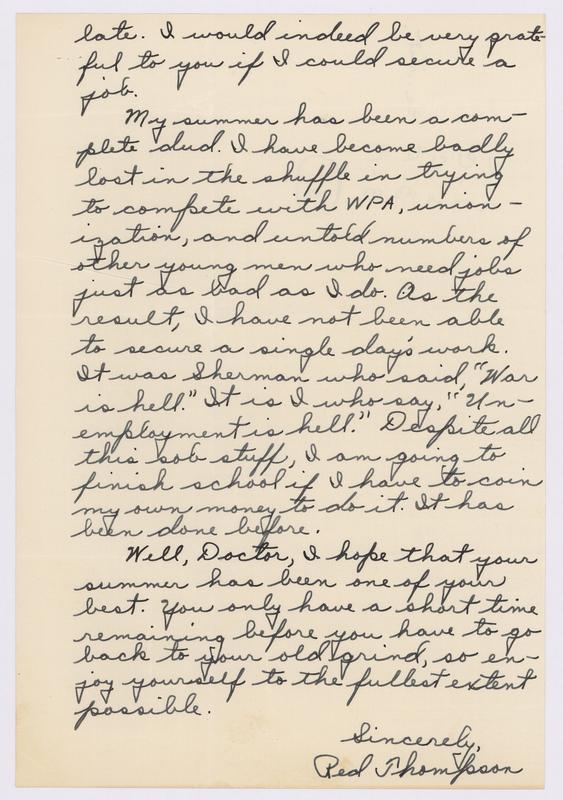 late. I would indeed be very grate-
ful to you if I could secure a
job.
My summer has been a com-
plete dud. I have become badly
lost in the shuffle in trying
to compete with WPA, union-
ization, and untold numbers of
other young men who need jobs
just as bad as I do. As the
result, I have not been able
to secure a single day's work.
It was Sherman who said, "War
is hell." It is I who say, "Un-
employment is hell." Despite all
this sob stuff, I am going to
finish school if I have to coin
my own money to do it. It has
been done before.
Well, Doctor, I hope that your
summer has been one of your
best. You only have a short time
remaining before you have to go
back to your old grind, so en-
joy yourself to the fullest extent
possible.
Sincerely,
Red Thompson